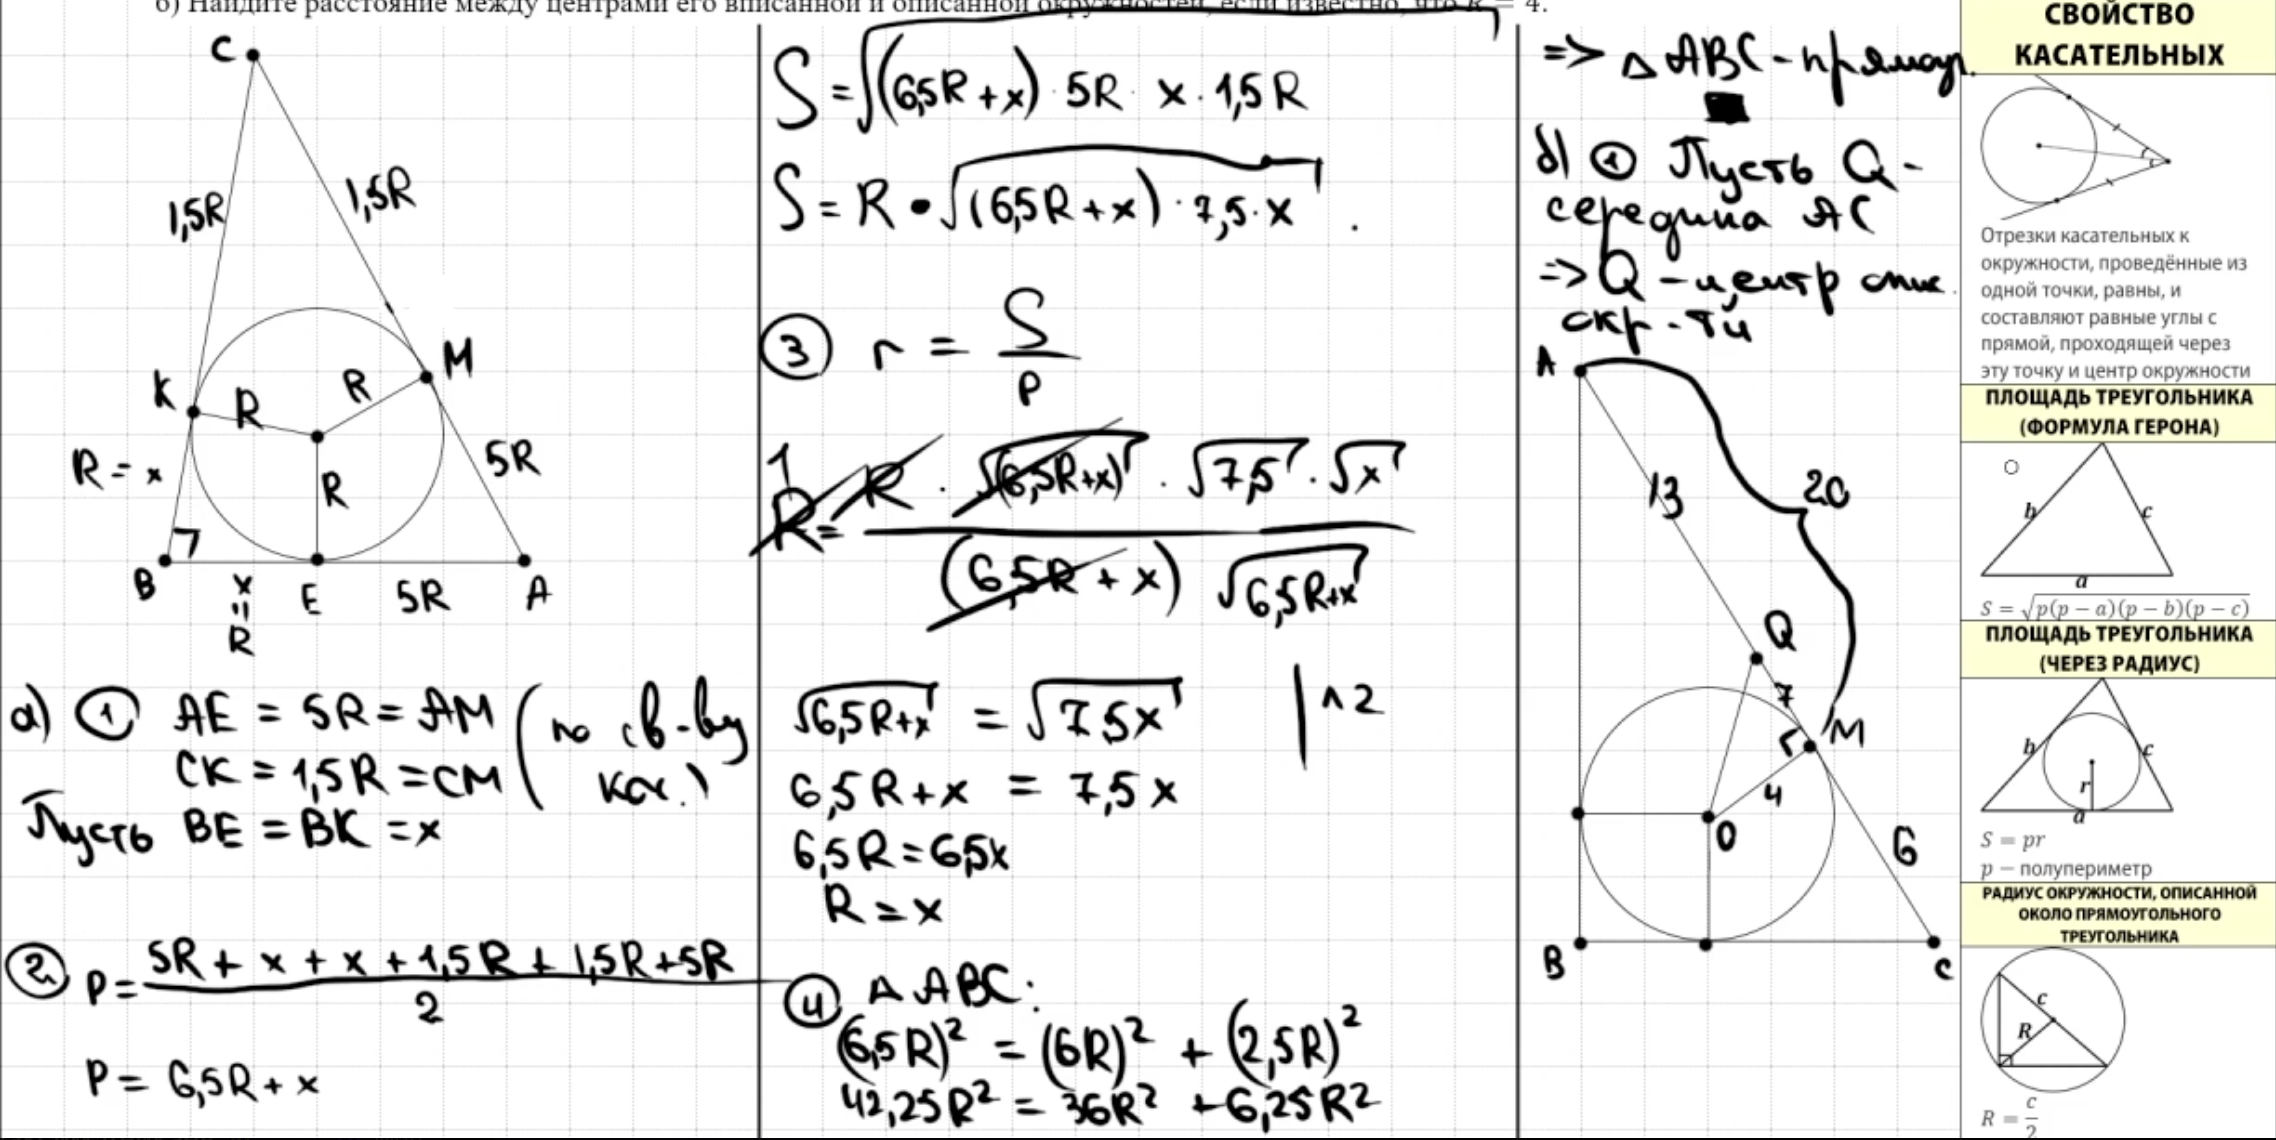 б) Найдите расстояние между центрами его вписанной и описанной окружностей, если известно, что R = 4.
C
1,5R
1,5R
K
R
R
M
R = x
R
5R
B
x
"
R
E
5R
A
а) ① AE = 5R = AM (по св-ву
CK = 1,5R = CM кас.)
Пусть BE = BK = x
② P = 5R + x + x + 1,5R + 1,5R + 5R
2
P = 6,5R + x
S = √(6,5R + x) · 5R · x · 1,5R
S = R · √(6,5R + x) · 7,5 · x .
③ r = S
P
1
R = R · √(6,5R+x) · √7,5 · √x
(6,5R + x) √6,5R+x
√6,5R+x = √7,5x | ^2
6,5R + x = 7,5x
6,5R = 6,5x
R = x
④ △ABC:
(6,5R)² = (6R)² + (2,5R)²
42,25R² = 36R² + 6,25R²
=> △ABC - прямоуг.
б) ① Пусть Q -
середина AC
=> Q - центр опис.
окр-ти
A
13
20
Q
7
M
4
O
6
B
C
СВОЙСТВО
КАСАТЕЛЬНЫХ
Отрезки касательных к
окружности, проведённые из
одной точки, равны, и
составляют равные углы с
прямой, проходящей через
эту точку и центр окружности
ПЛОЩАДЬ ТРЕУГОЛЬНИКА
(ФОРМУЛА ГЕРОНА)
b
c
a
S = √p(p − a)(p − b)(p − c)
ПЛОЩАДЬ ТРЕУГОЛЬНИКА
(ЧЕРЕЗ РАДИУС)
b
c
r
a
S = pr
p − полупериметр
РАДИУС ОКРУЖНОСТИ, ОПИСАННОЙ
ОКОЛО ПРЯМОУГОЛЬНОГО
ТРЕУГОЛЬНИКА
c
R
R = c
2